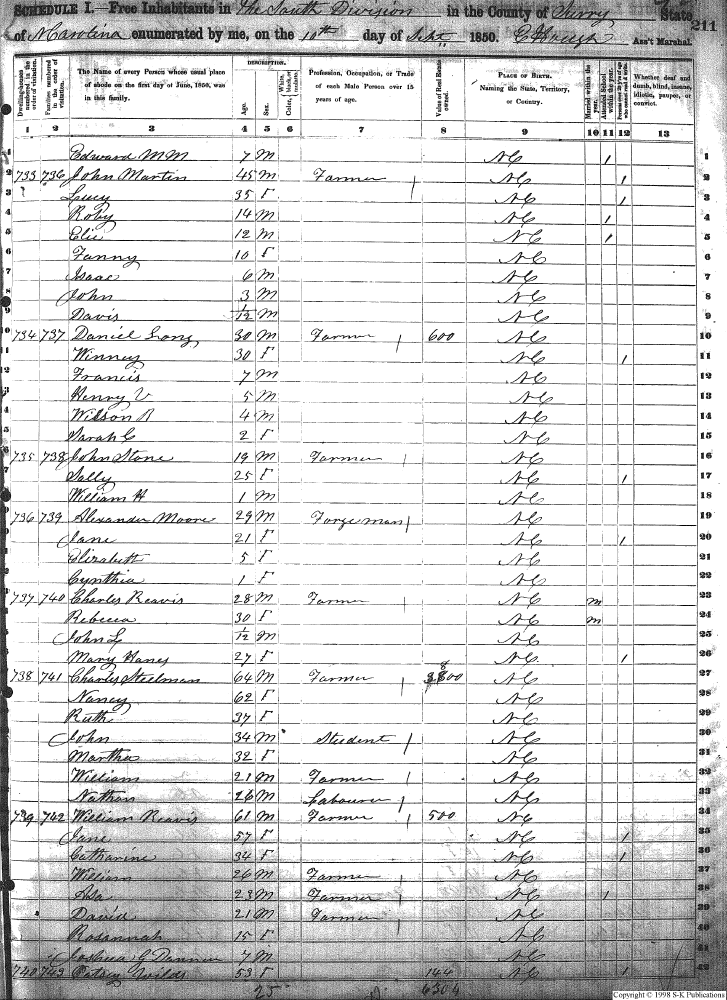 SCHEDULE I.—Free Inhabitants in The South Division in the County of Surry State
of N Carolina enumerated by me, on the 10th day of Sept 1850. Ass't Marshal. 211
Dwelling-houses numbered in the order of visitation.
Families numbered in the order of visitation.
The Name of every Person whose usual place of abode on the first day of June, 1850, was in this family.
DESCRIPTION.
Age.
Sex.
Color, White, black, or mulatto.
Profession, Occupation, or Trade of each Male Person over 15 years of age.
Value of Real Estate owned.
PLACE OF BIRTH. Naming the State, Territory, or Country.
Married within the year.
Attended School within the year.
Persons over 20 y'rs of age who cannot read & write.
Whether deaf and dumb, blind, insane, idiotic, pauper, or convict.
1 2 3 4 5 6 7 8 9 10 11 12 13
1 Edward M M 7 M NC / 1
2 733 736 John Martin 45 M Farmer / NC / 2
3 Lucy 35 F NC / 3
4 Roby 14 M NC / 4
5 Elie 12 M NC / 5
6 Fanny 10 F NC 6
7 Isaac 6 M NC 7
8 John 3 M NC 8
9 Davis 1/12 M NC 9
10 734 737 Daniel Long 30 M Farmer / 600 NC 10
11 Winney 30 F NC / 11
12 Francis 7 M NC 12
13 Henry V 5 M NC 13
14 Wilson R 4 M NC 14
15 Sarah C 2 F NC 15
16 735 738 John Stone 19 M Farmer / NC 16
17 Sally 25 F NC / 17
18 William H 1 M NC 18
19 736 739 Alexander Moore 29 M Forgeman / NC 19
20 Jane 21 F NC / 20
21 Elizabeth 5 F NC 21
22 Cynthia 1 F NC 22
23 737 740 Charles Reavis 28 M Farmer / NC m 23
24 Rebecca 30 F NC m 24
25 John L 1/12 M NC 25
26 Mary Hanes 27 F NC / 26
27 738 741 Charles Steelman 64 M Farmer / 3800 NC 27
28 Nancy 62 F NC 28
29 Ruth 37 F NC 29
30 John 34 M Student / NC 30
31 Martha 32 F NC 31
32 William 21 M Farmer / NC 32
33 Nathan 26 M Labourer / NC 33
34 739 742 William Reavis 61 M Farmer / 500 NC 34
35 Jane 57 F NC / 35
36 Catharine 34 F NC / 36
37 William 26 M Farmer / NC 37
38 Asa 23 M Farmer / NC / 38
39 David 21 M Farmer / NC 39
40 Rosannah 15 F NC 40
41 Joshua G 7 M NC 41
42 740 743 Patsy Wilds 53 F 144 NC / 42
25
Copyright © 1998 S-K Publications